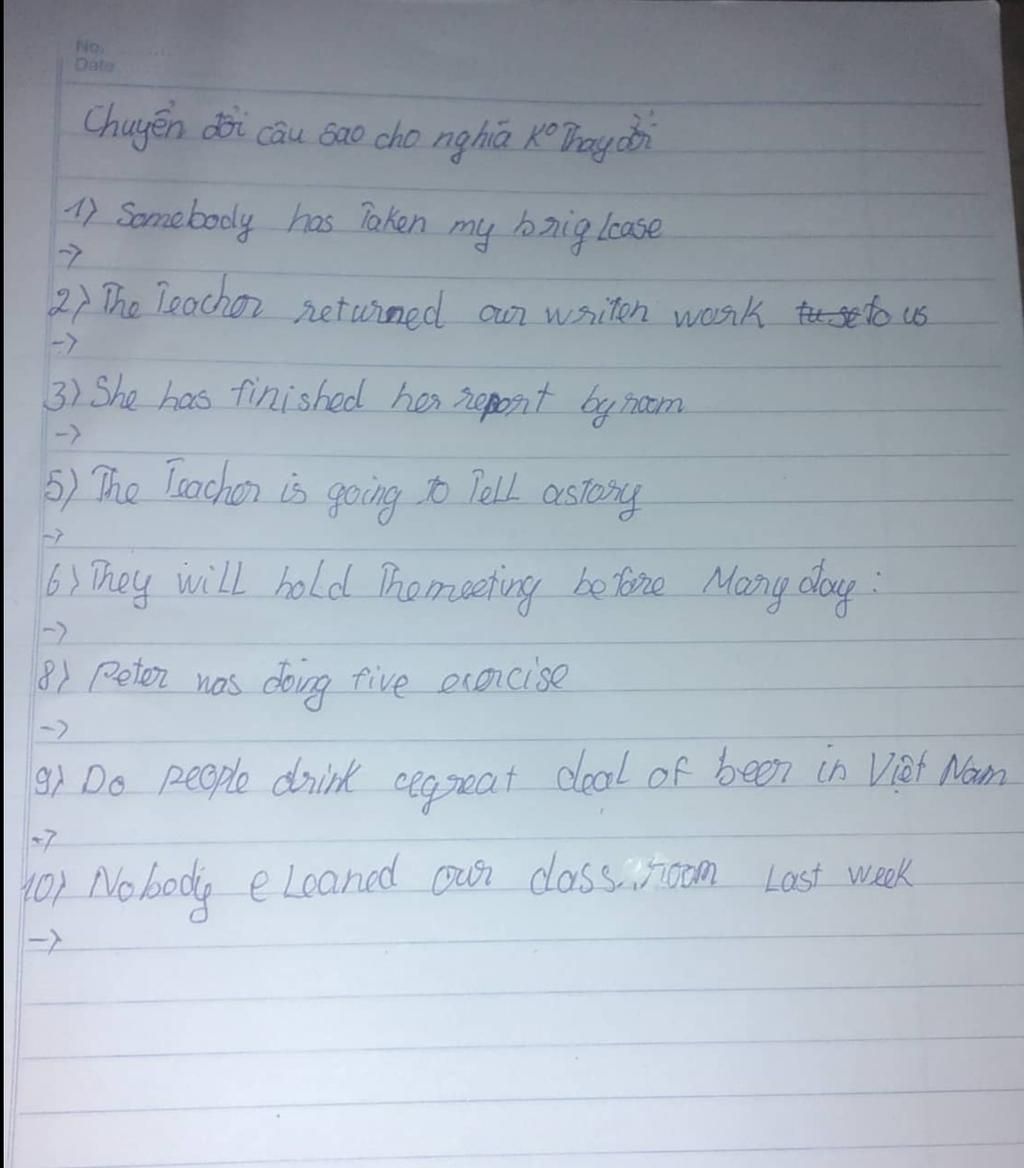 No.
Date
Chuyển đổi câu sao cho nghĩa Kº Thay đổi
1) Somebody has Taken my briglcase
->
2) The Teacher returned our writen work to us
->
3) She has finished her report by room
->
5) The Teacher is going to Tell a story
->
6) They will hold The meeting before Mary day :
->
8) Peter was doing five exercise
->
9) Do people drink a great deal of beer in Việt Nam
->
10) Nobody eleaned our class room Last week
->